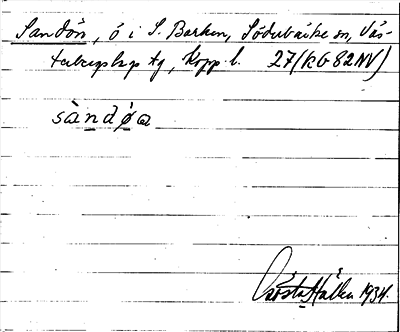 Sandön, ö i S. Barken, Söderbärke sn, Väs-
terbergslags dg, Kopp. l. 27/(RG 82 NV)
sàndø̀a
Gösta Hallen 1934.